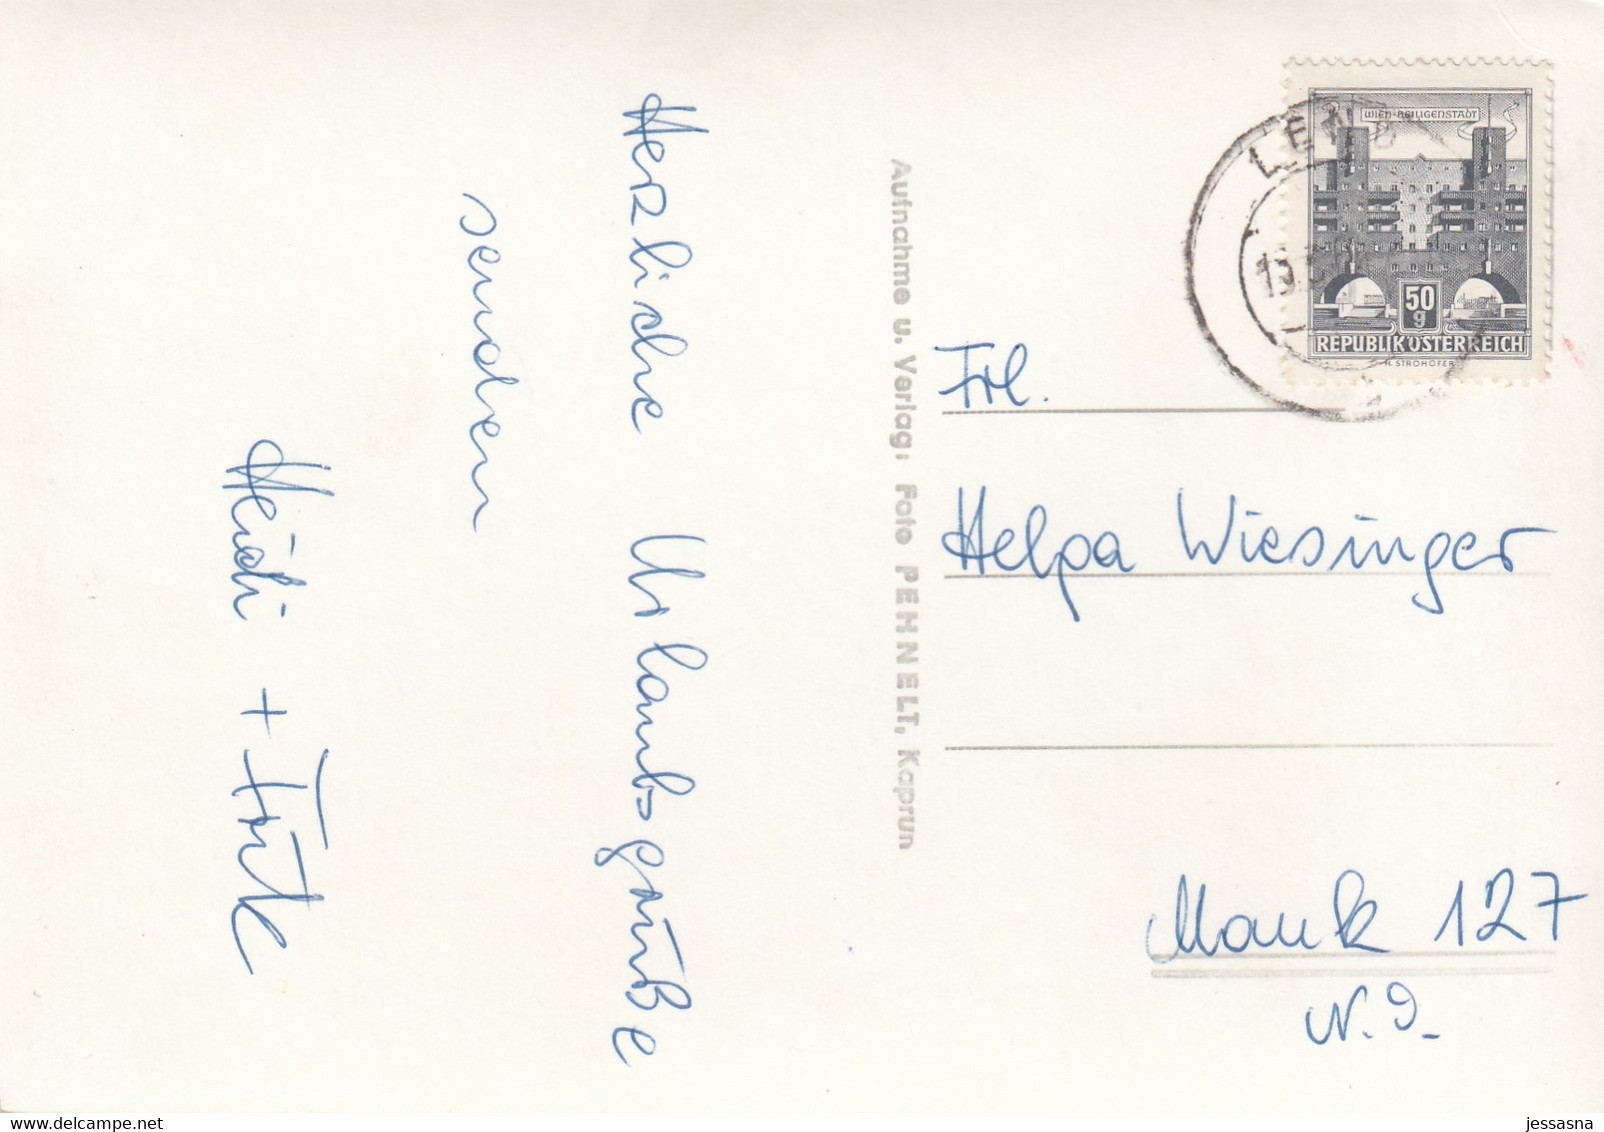 Herzliche Urlaubsgrüße
senden
Heidi +
Aufnahme u. Verlag: Foto PEHNELT, Kaprun
WIEN-HEILIGENSTADT
50
g
REPUBLIK ÖSTERREICH
H. STROHOFER
LEND
Frl.
Helga Wiesinger
Mank 127
N.Ö.
www.delcampe.net
jessasna